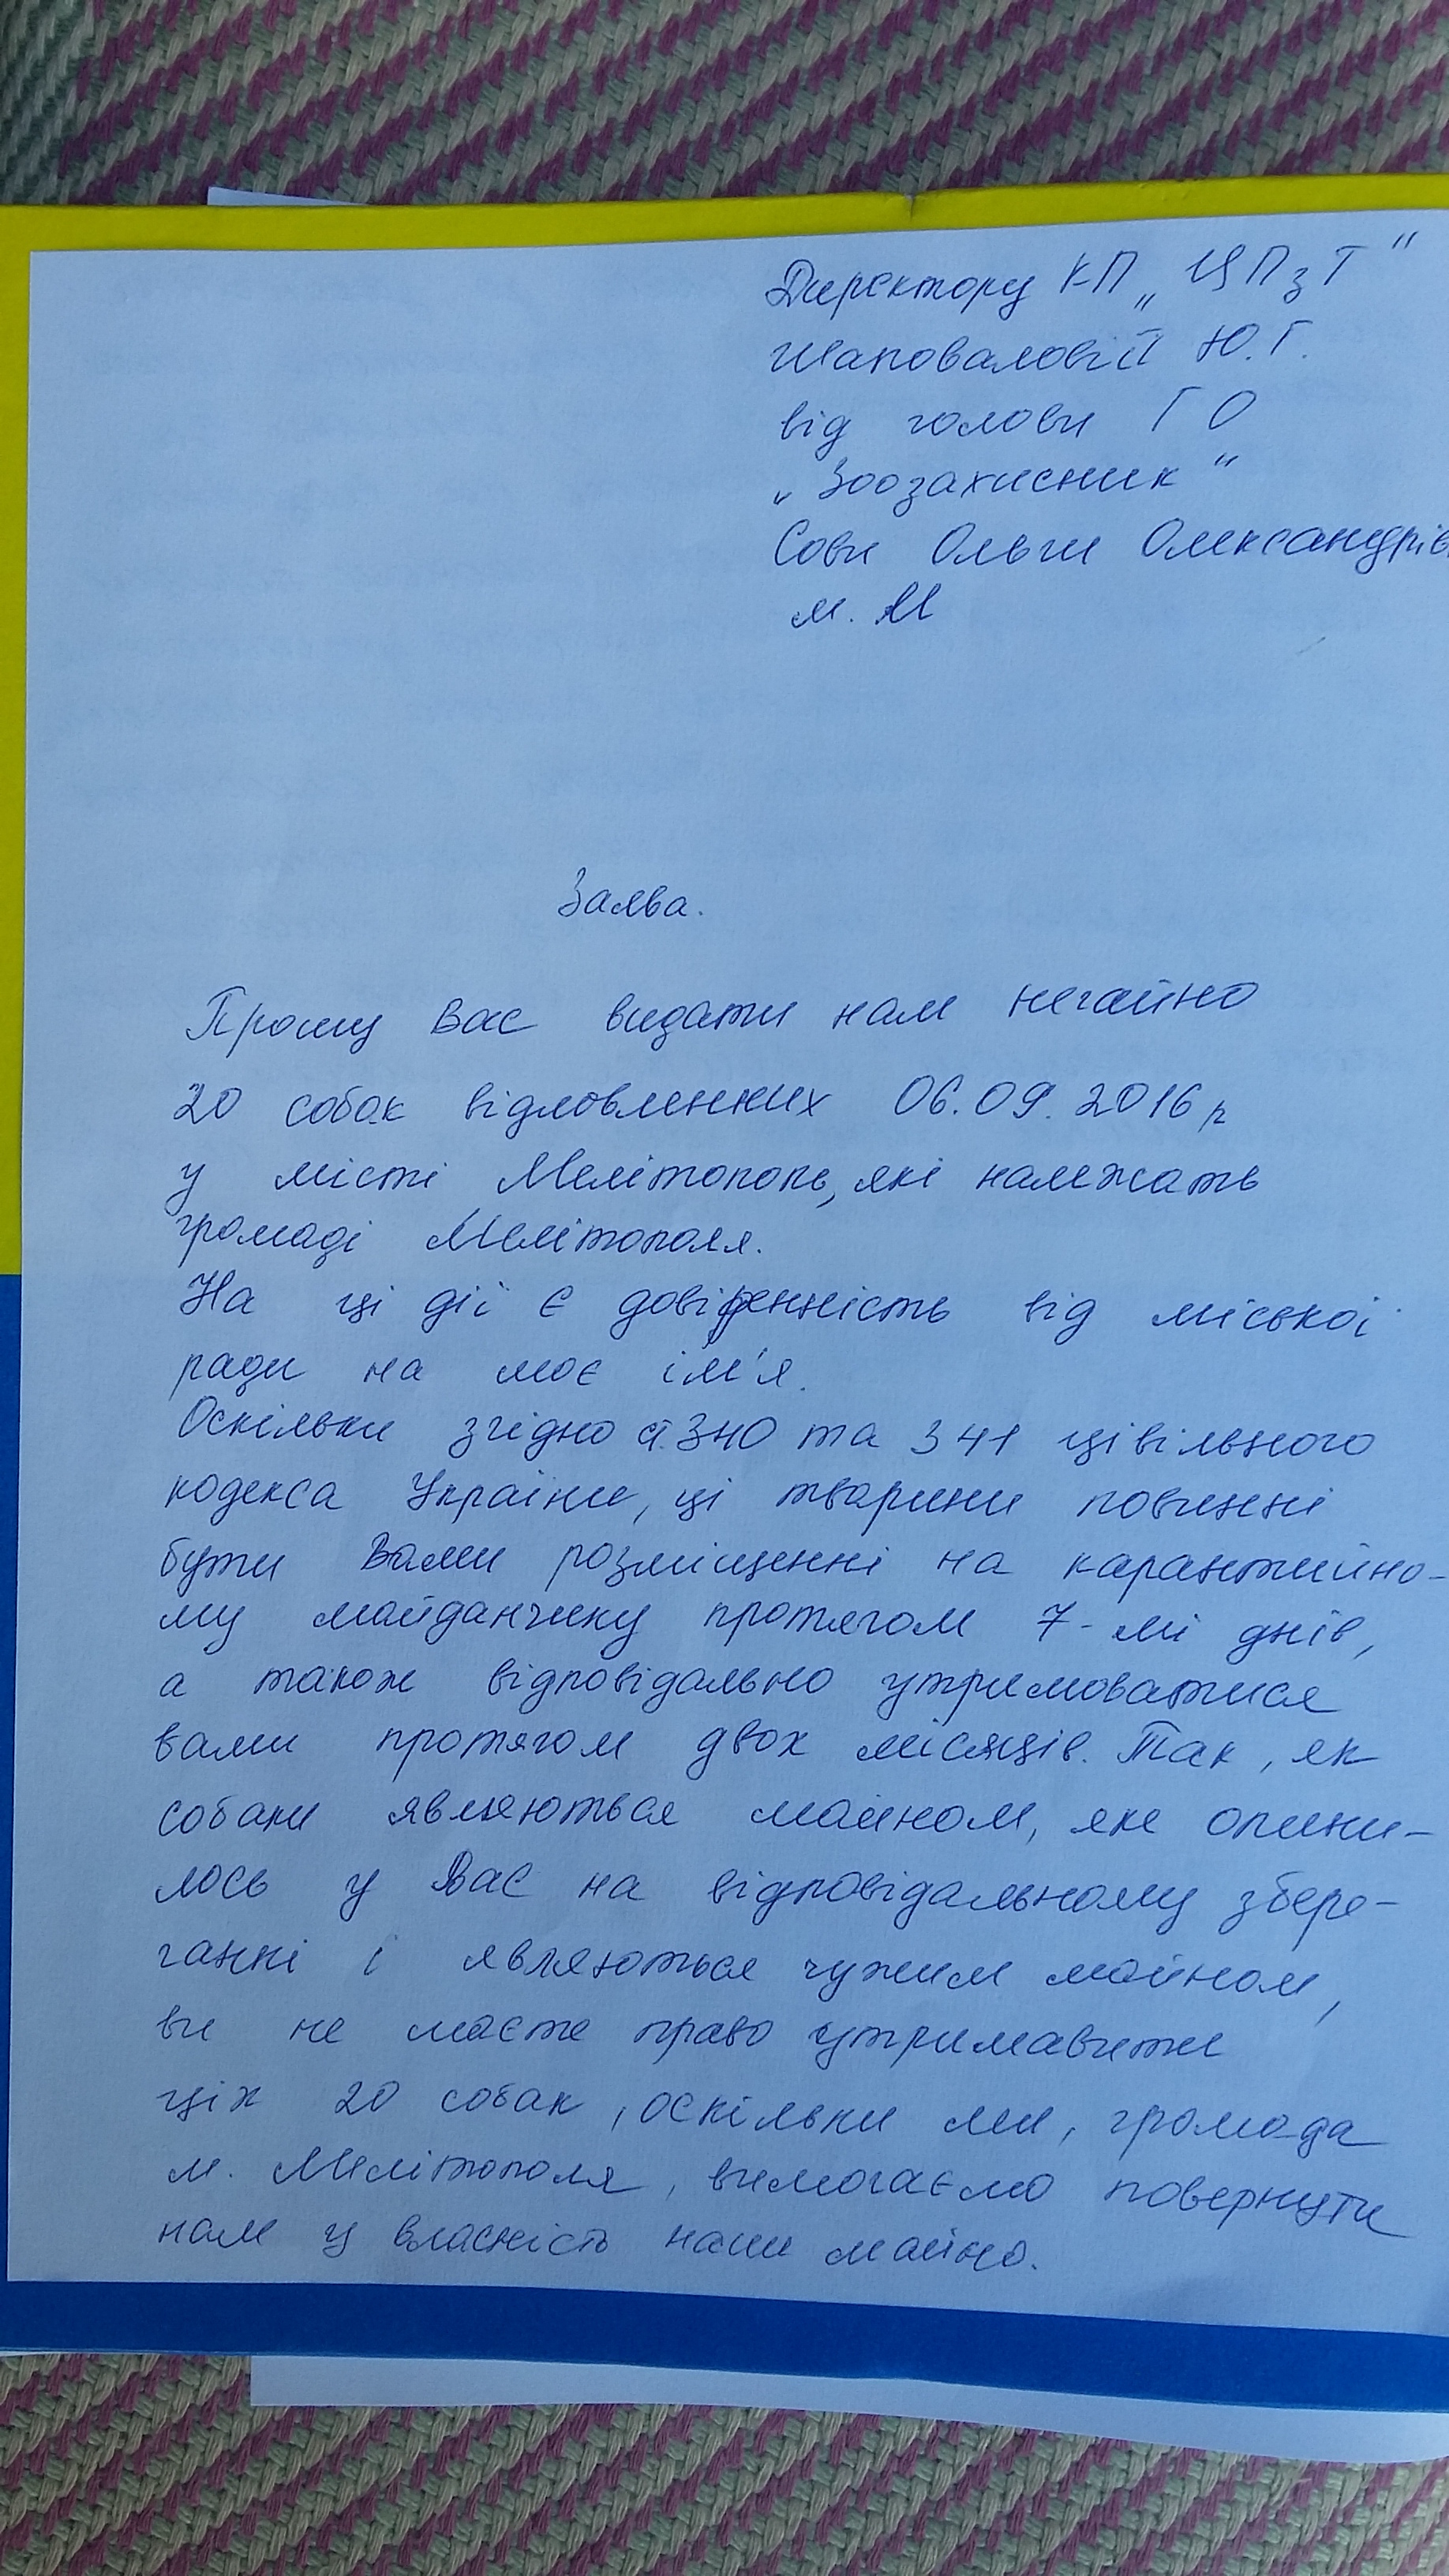 Директору КП „ ЦПзТ "
Шаповаловій Ю.Г.
від голови ГО
„ Зоозахисник "
Сови Ольги Олександрів
м. М
Заява.
Прошу Вас видати нам негайно
20 собак відловленних 06.09.2016 р
у місті Мелітополь, які належать
громаді Мелітополя.
На ці дії є довіренність від міської
ради на моє ім'я.
Оскільки згідно ст. 340 та 341 цівільного
кодекса України, ці тварини повинні
бути Вами розміщенні на карантийно-
му майданчику протягом 7-ми днів,
а також відповідально утримоватися
вами протягом двох місяців. Так, як
собаки являються майном, яке опини-
лось у Вас на відповідальному збере-
ганні і являються чужим майном,
ви не маєте право утримавити
ціх 20 собак, оскільки ми, громада
м. Мелітополя, вимогаємо повернути
нам у власність наши майно.